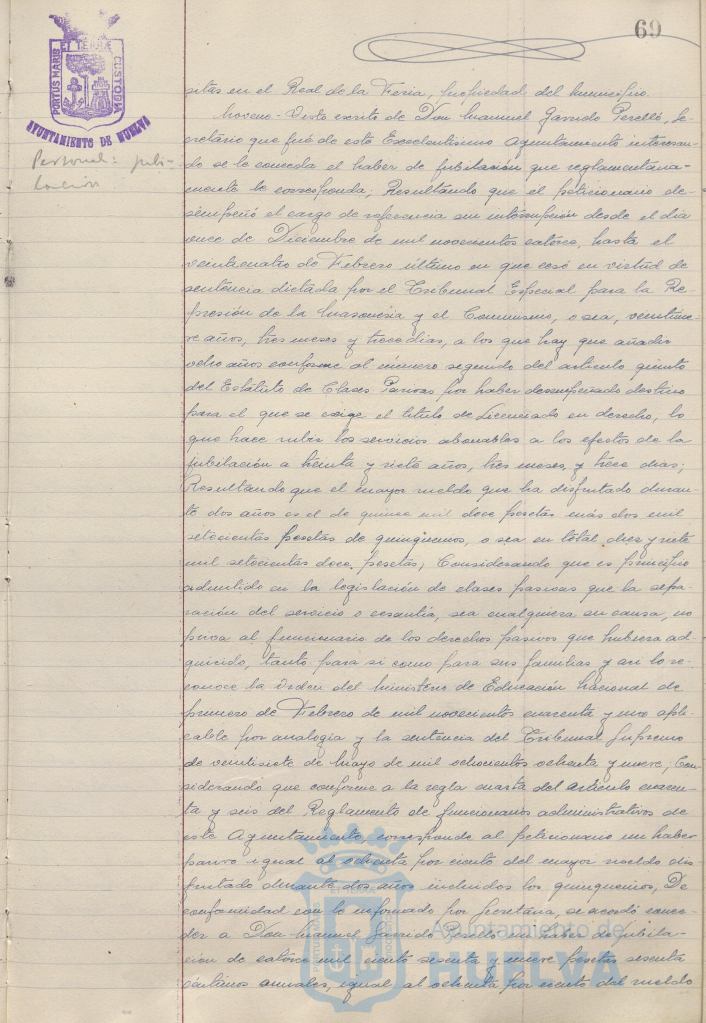 69
PORTUS MARIS ET TERRAE CUSTODIA
AYUNTAMIENTO DE HUELVA
Personal: jubi-
lación
sitas en el Real de la Feria, propiedad del municipio.
Noveno.- Visto escrito de Don Manuel Garrido Perelló, Se-
cretario que fué de este Excelentísimo Ayuntamiento interesan-
do se le conceda el haber de jubilación que reglamentaria-
mente le corresponda; Resultando que el peticionario de-
sempeñó el cargo de referencia sin interrupción desde el dia
once de Diciembre de mil novecientos catorce, hasta el
veinticuatro de Febrero último en que cesó en virtud de
sentencia dictada por el Tribunal Especial para la Re-
presión de la Masonería y el Comunismo, o sea, veintinue-
ve años, tres meses y trece dias, a los que hay que añadir
ocho años conforme al número segundo del artículo quinto
del Estatuto de Clases Pasivas por haber desempeñado destino
para el que se exige el título de Licenciado en derecho, lo
que hace subir los servicios abonables a los efectos de la
jubilación a treinta y siete años, tres meses, y trece dias;
Resultando que el mayor sueldo que ha disfrutado duran-
te dos años es el de quince mil doce pesetas más dos mil
setecientas pesetas de quinquenios, o sea en total diez y siete
mil setecientas doce pesetas; Considerando que es principio
admitido en la legislación de clases pasivas que la sepa-
ración del servicio o cesantía, sea cualquiera su causa, no
priva al funcionario de los derechos pasivos que hubiera ad-
quirido, tanto para si como para sus familias y asi lo re-
conoce la Orden del Ministerio de Educación Nacional de
primero de Febrero de mil novecientos cuarenta y uno apli-
cable por analogía y la sentencia del Tribunal Supremo
de veintisiete de Mayo de mil ochocientos ochenta y nueve; Con-
siderando que conforme a la regla cuarta del artículo cuaren-
ta y seis del Reglamento de funcionarios administrativos de
este Ayuntamiento corresponde al peticionario un haber
pasivo igual al ochenta por ciento del mayor sueldo dis-
frutado durante dos años incluidos los quinquenios, De
conformidad con lo informado por Secretaría, se acordó conce-
der a Don Manuel Garrido Perelló un haber de jubila-
ción de catorce mil ciento sesenta y nueve pesetas sesenta
céntimos anuales, igual al ochenta por ciento del sueldo
Ayuntamiento de
HUELVA